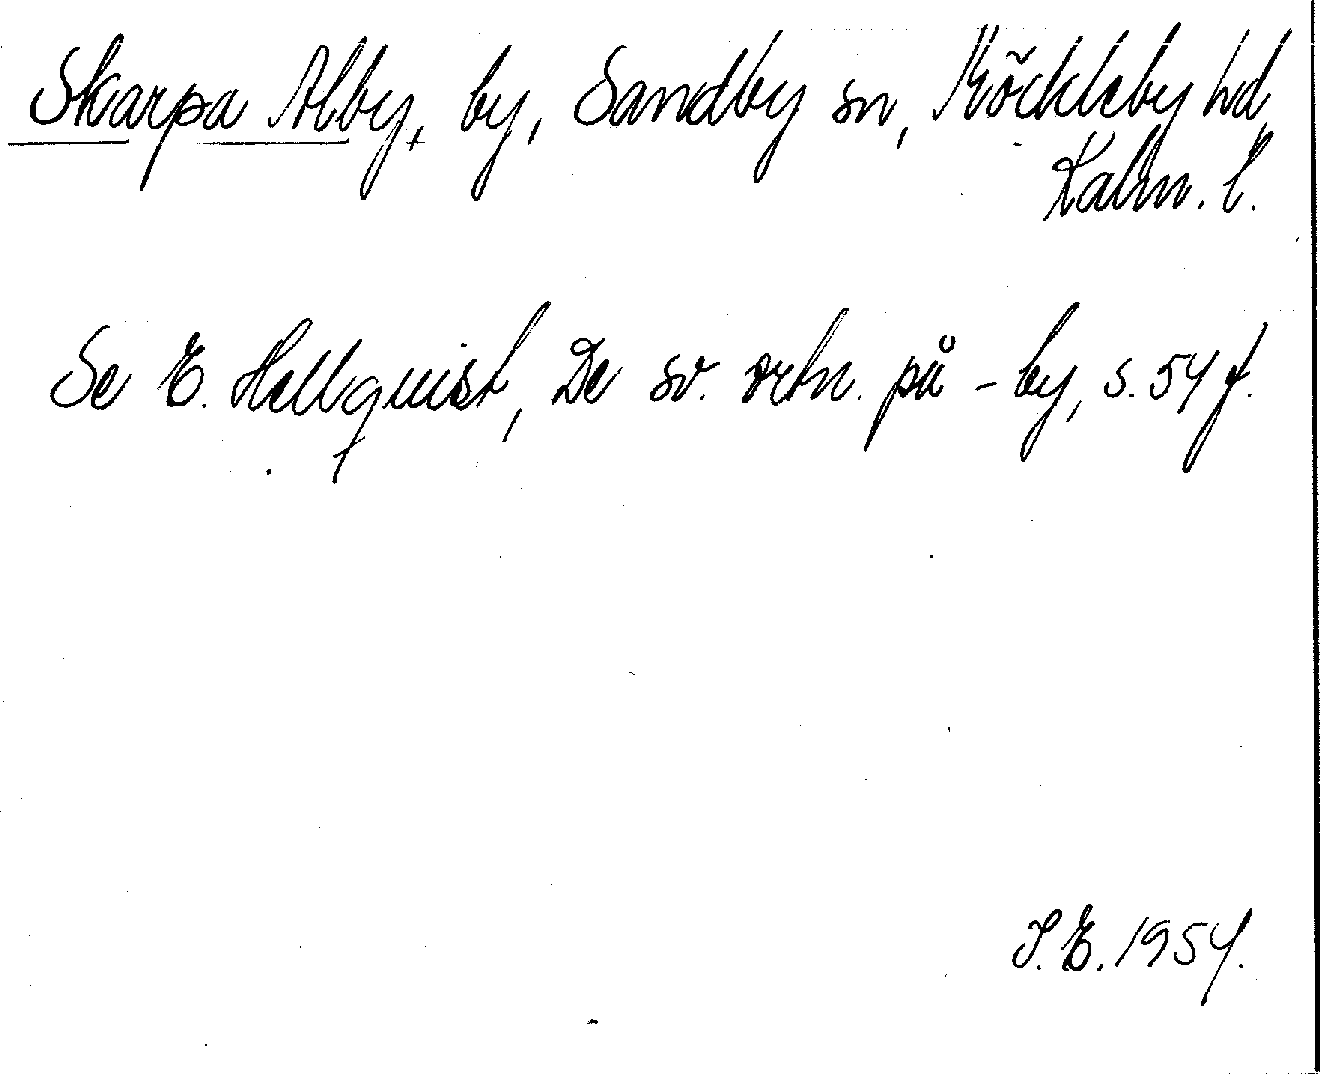 Skarpa Alby, by, Sandby sn, Möckleby hd,
Kalm. l.
Se E. Hellquist, De sv. ortn. på -by, s. 54 f.
S.E. 1954.